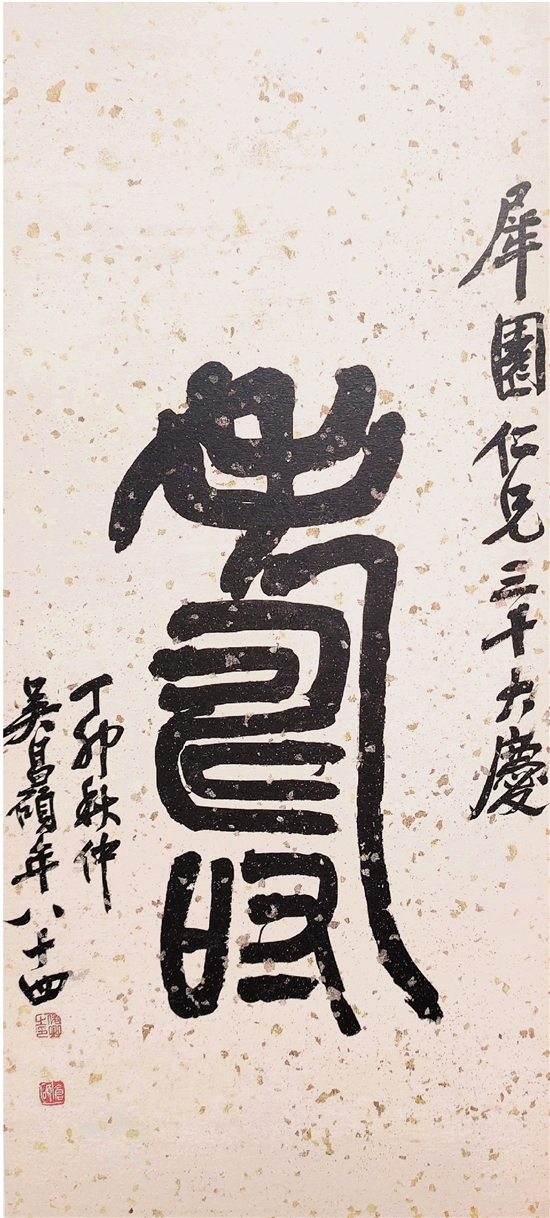 犀園仁兄三十大慶
壽
丁卯秋仲
吳昌碩年八十四